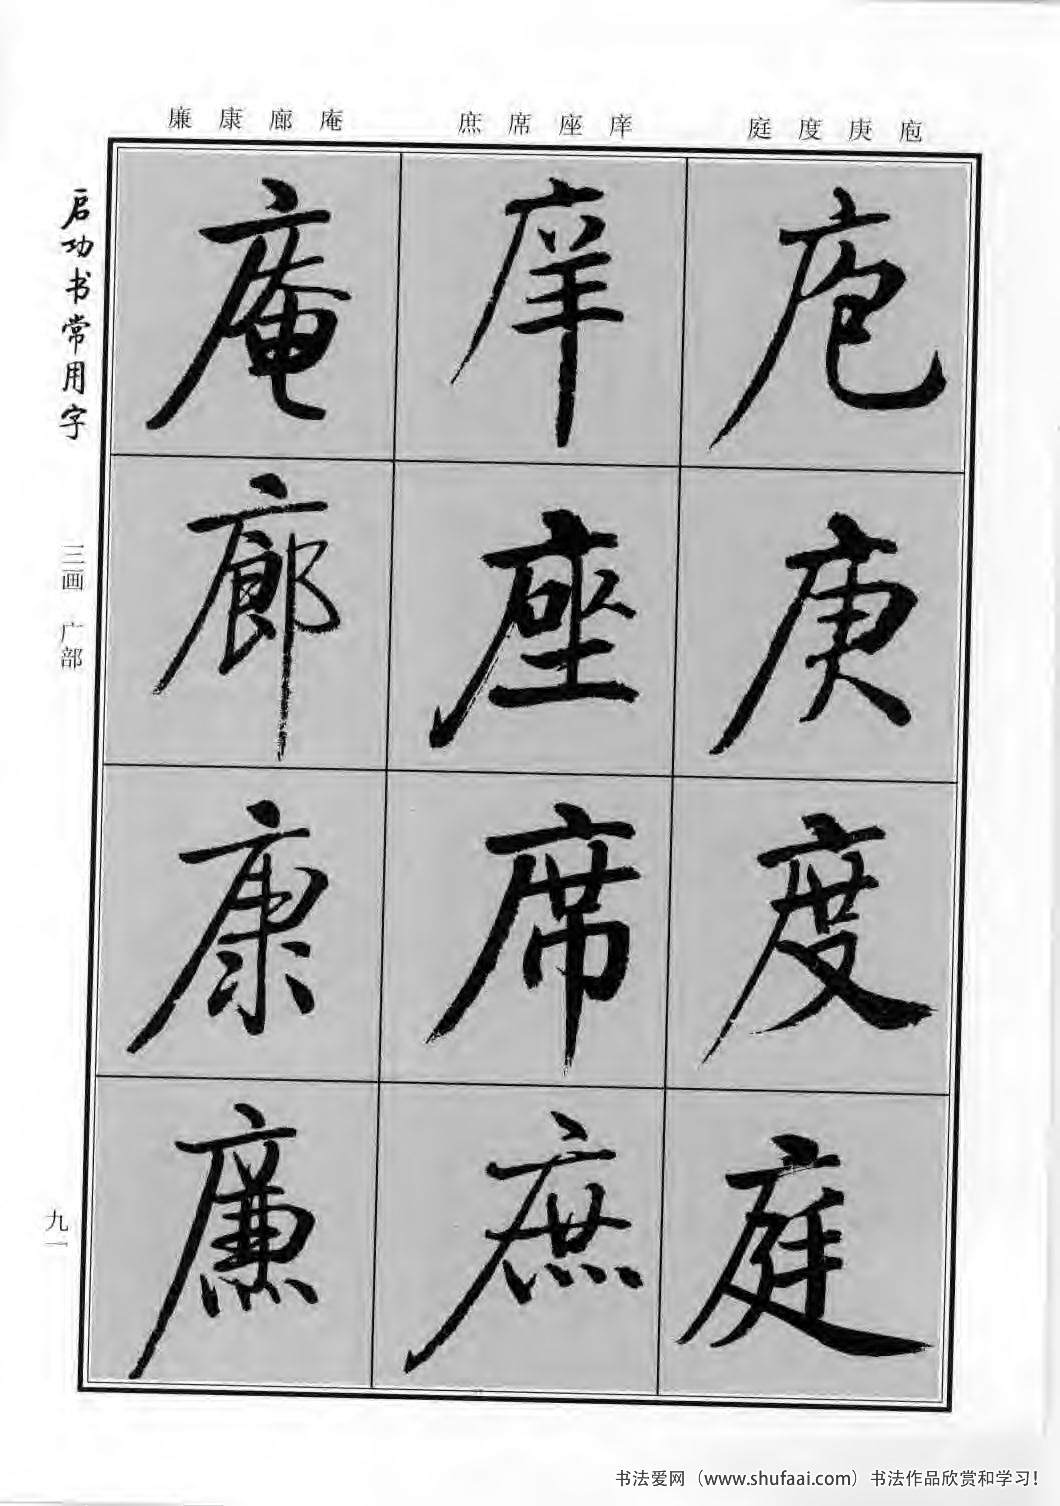 庭度庚庖
庶席座庠
廉康廊庵
庖
庚
度
庭
庠
座
席
庶
庵
廊
康
廉
启功书常用字
三画 广部
九一
书法爱网（www.shufaai.com）书法作品欣赏和学习！